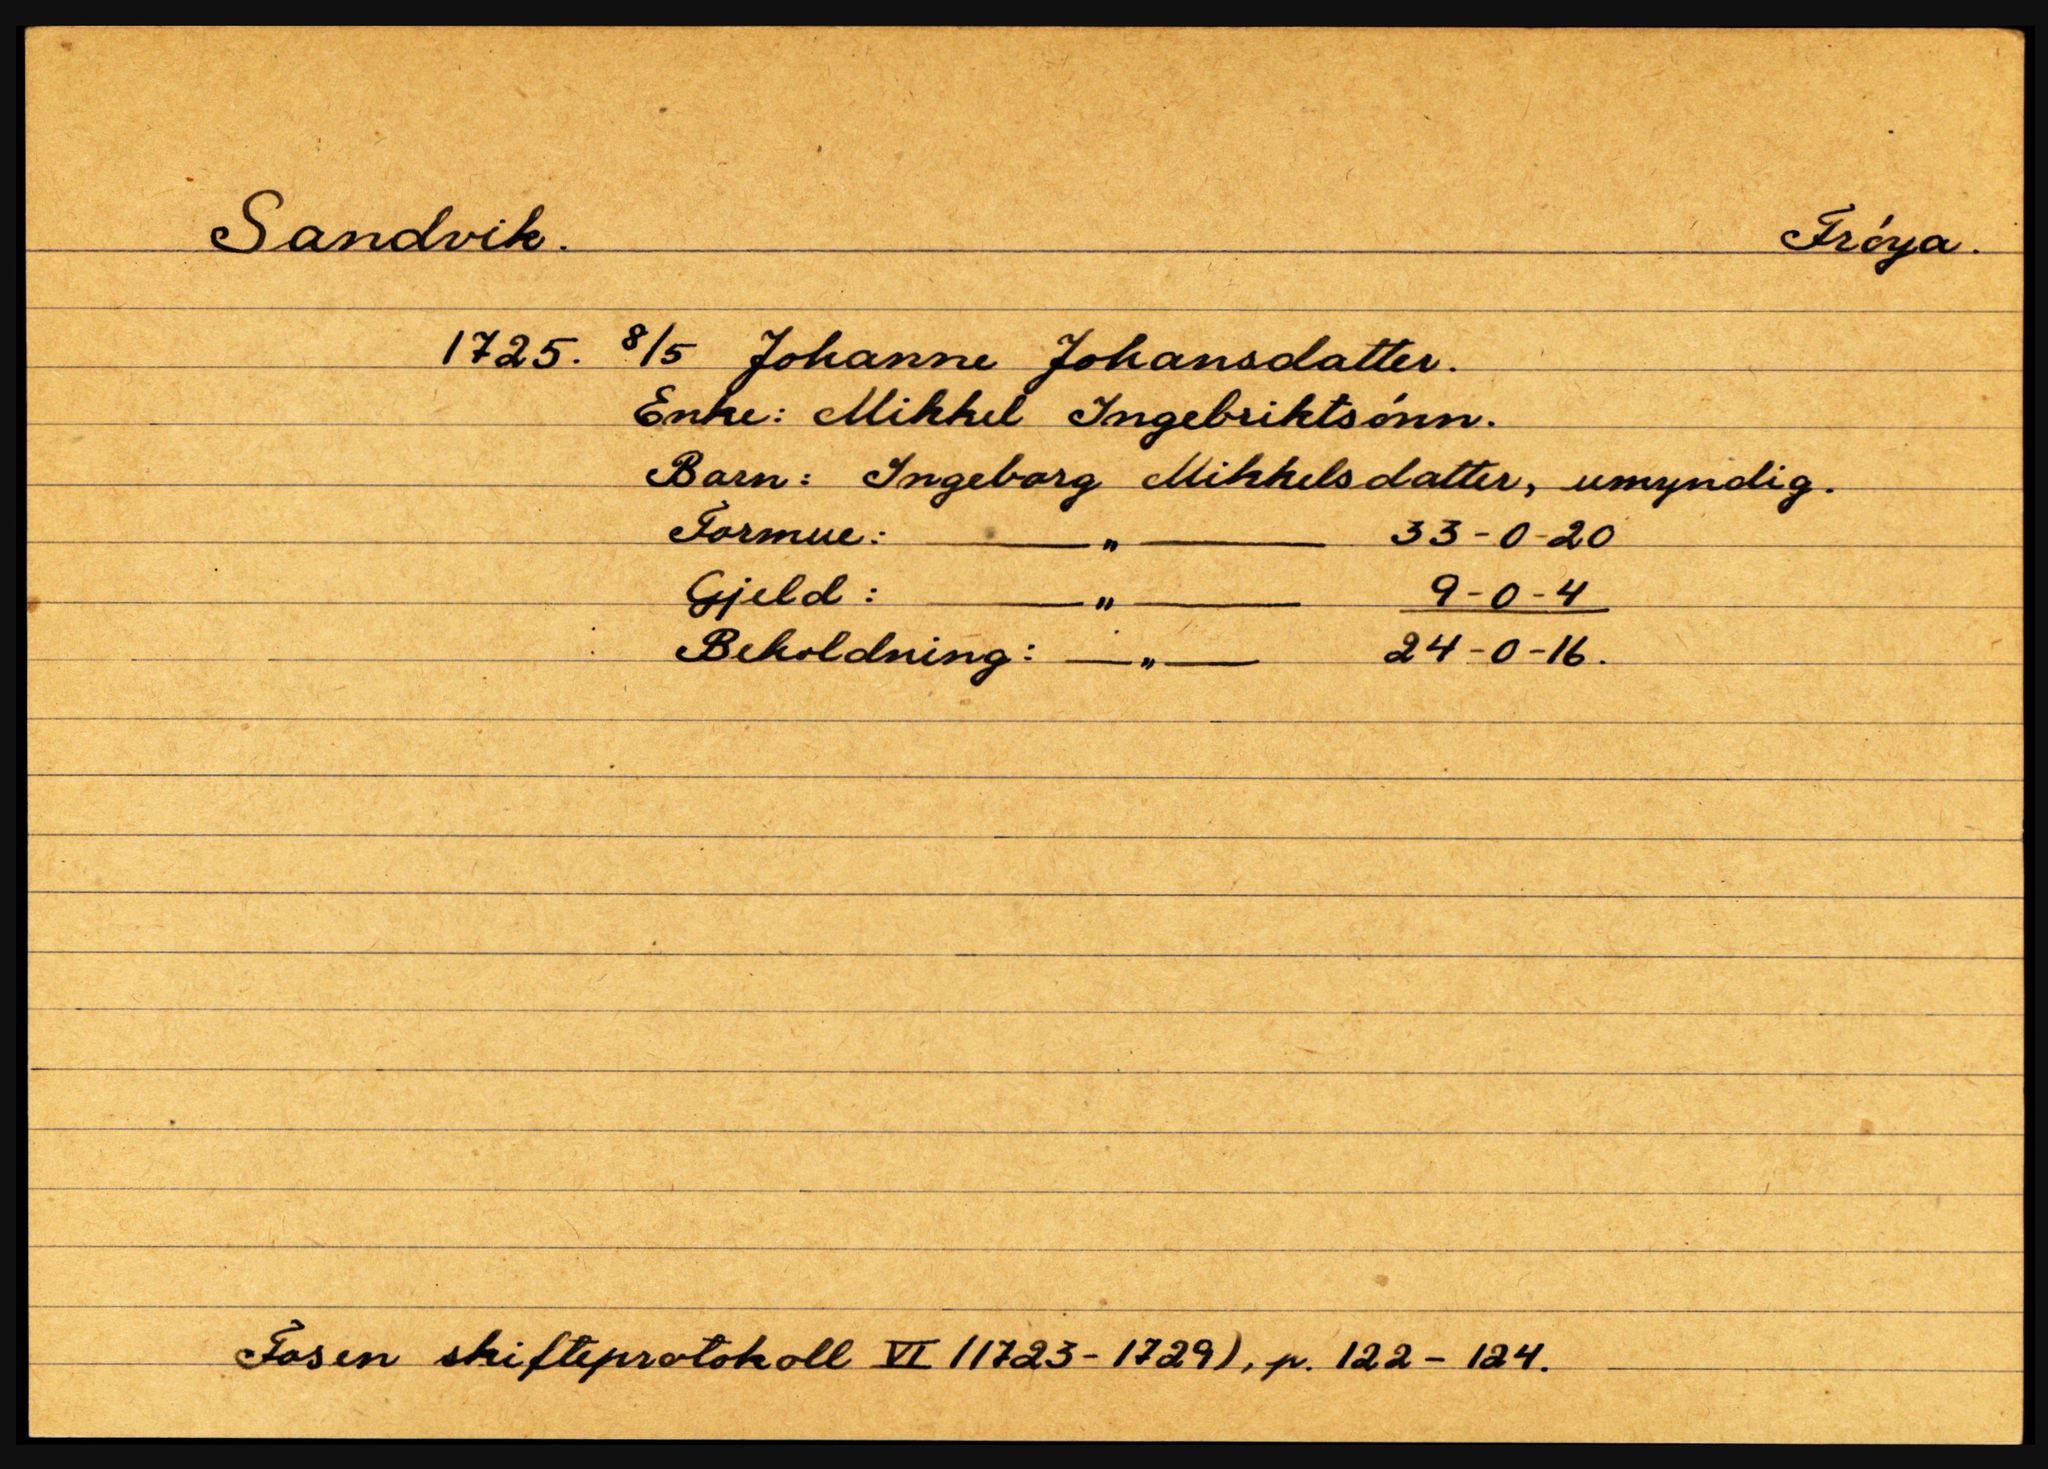 Sandvik. Fróya.
1725. 8/5 Johanne Johansdatter.
Enke: Mikkel Ingebriktsónn.
Barn: Ingeborg Mikkelsdatter, umyndig.
Formue: —„— 33-0-20
Gjeld: —„— 9-0-4
Beholdning: —„— 24-0-16.
Fosen skifteprotokoll VI (1723-1729), p. 122-124.